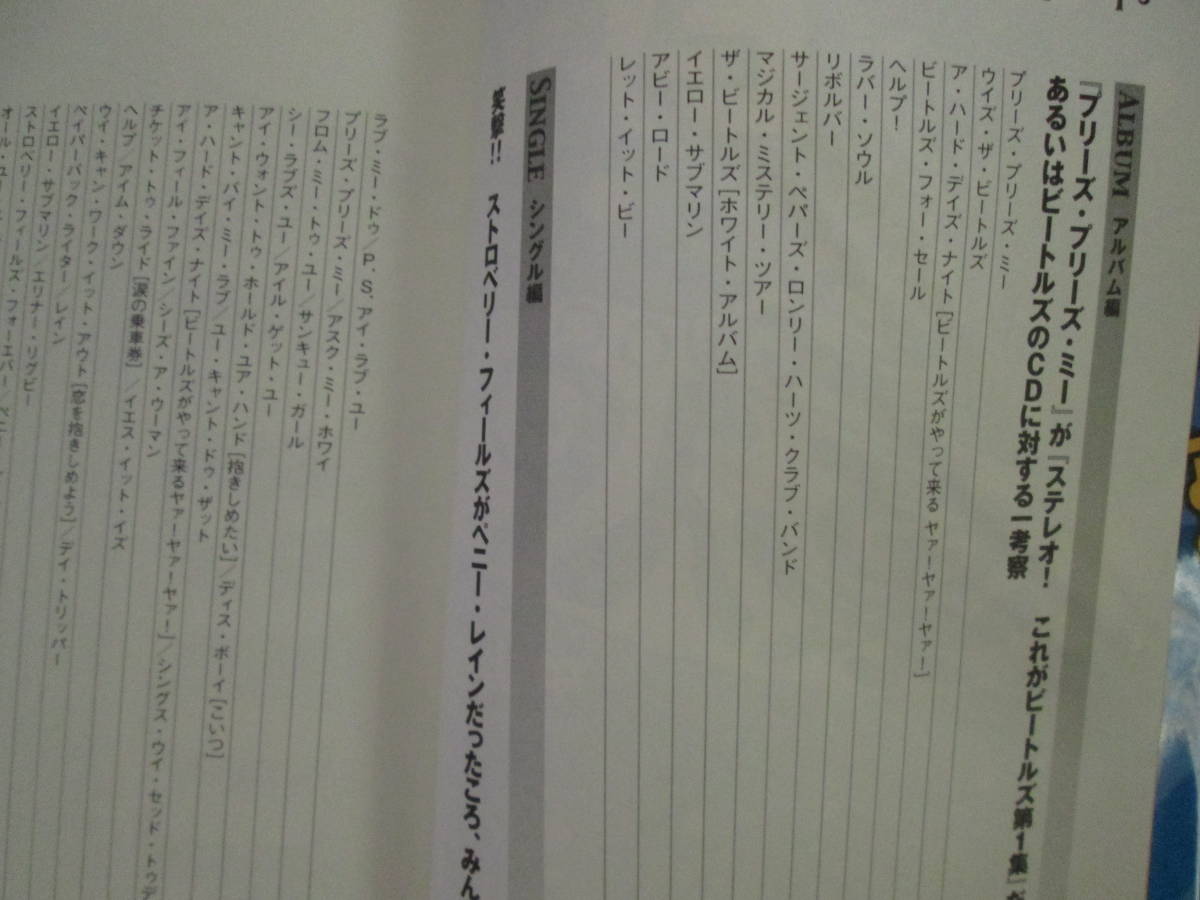 ALBUM アルバム編
『プリーズ・プリーズ・ミー』が『ステレオ! これがビートルズ第1集』が
あるいはビートルズのCDに対する一考察
プリーズ・プリーズ・ミー
ウイズ・ザ・ビートルズ
ア・ハード・デイズ・ナイト[ビートルズがやって来る ヤァ!ヤァ!ヤァ!]
ビートルズ・フォー・セール
ヘルプ!
ラバー・ソウル
リボルバー
サージェント・ペパーズ・ロンリー・ハーツ・クラブ・バンド
マジカル・ミステリー・ツアー
ザ・ビートルズ[ホワイト・アルバム]
イエロー・サブマリン
アビー・ロード
レット・イット・ビー
SINGLE シングル編
笑撃!! ストロベリー・フィールズがペニー・レインだったころ、みん
ラブ・ミー・ドゥ/P.S.アイ・ラブ・ユー
プリーズ・プリーズ・ミー/アスク・ミー・ホワイ
フロム・ミー・トゥ・ユー/サンキュー・ガール
シー・ラブズ・ユー/アイル・ゲット・ユー
アイ・ウォント・トゥ・ホールド・ユア・ハンド[抱きしめたい]/ディス・ボーイ[こいつ]
キャント・バイ・ミー・ラブ/ユー・キャント・ドゥ・ザット
ア・ハード・デイズ・ナイト[ビートルズがやって来るヤァ!ヤァ!ヤァ!]/シングス・ウイ・セッド・トゥデ
アイ・フィール・ファイン/シーズ・ア・ウーマン
チケット・トゥ・ライド[涙の乗車券]/イエス・イット・イズ
ヘルプ/アイム・ダウン
ウイ・キャン・ワーク・イット・アウト[恋を抱きしめよう]/デイ・トリッパー
ペイパーバック・ライター/レイン
イエロー・サブマリン/エリナー・リグビー
ストロベリー・フィールズ・フォーエバー/ペニー・
オール・ユー・